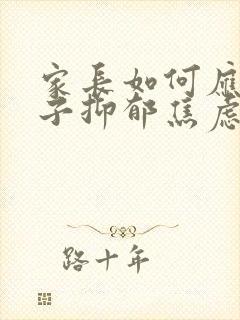 家長如何應
子抑郁焦慮
路十年